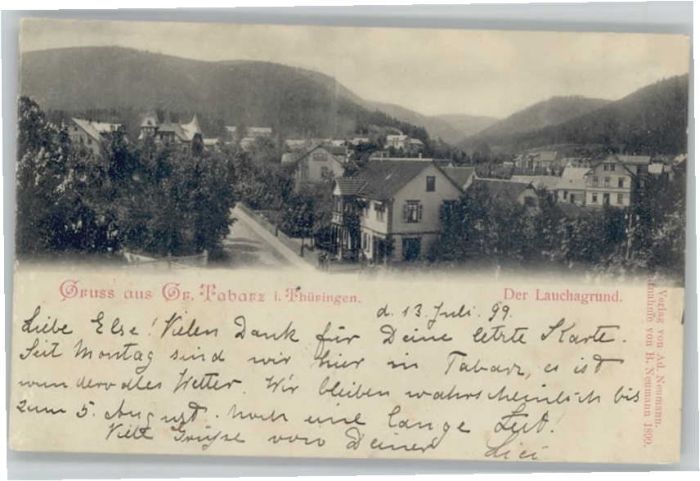 Gruss aus Gr. Tabarz i. Thüringen.
Der Lauchagrund.
d. 13. Juli. 99.
Liebe Else! Vielen Dank für Deine letzte Karte.
Seit Montag sind wir hier in Tabarz, es ist
wundervolles Wetter. Wir bleiben wahrscheinlich bis
zum 5. August. noch eine lange Zeit!
Viele Grüße von Deiner
Verlag von Ad. Neumann.
Aufnahme von B. Neumann 1899.